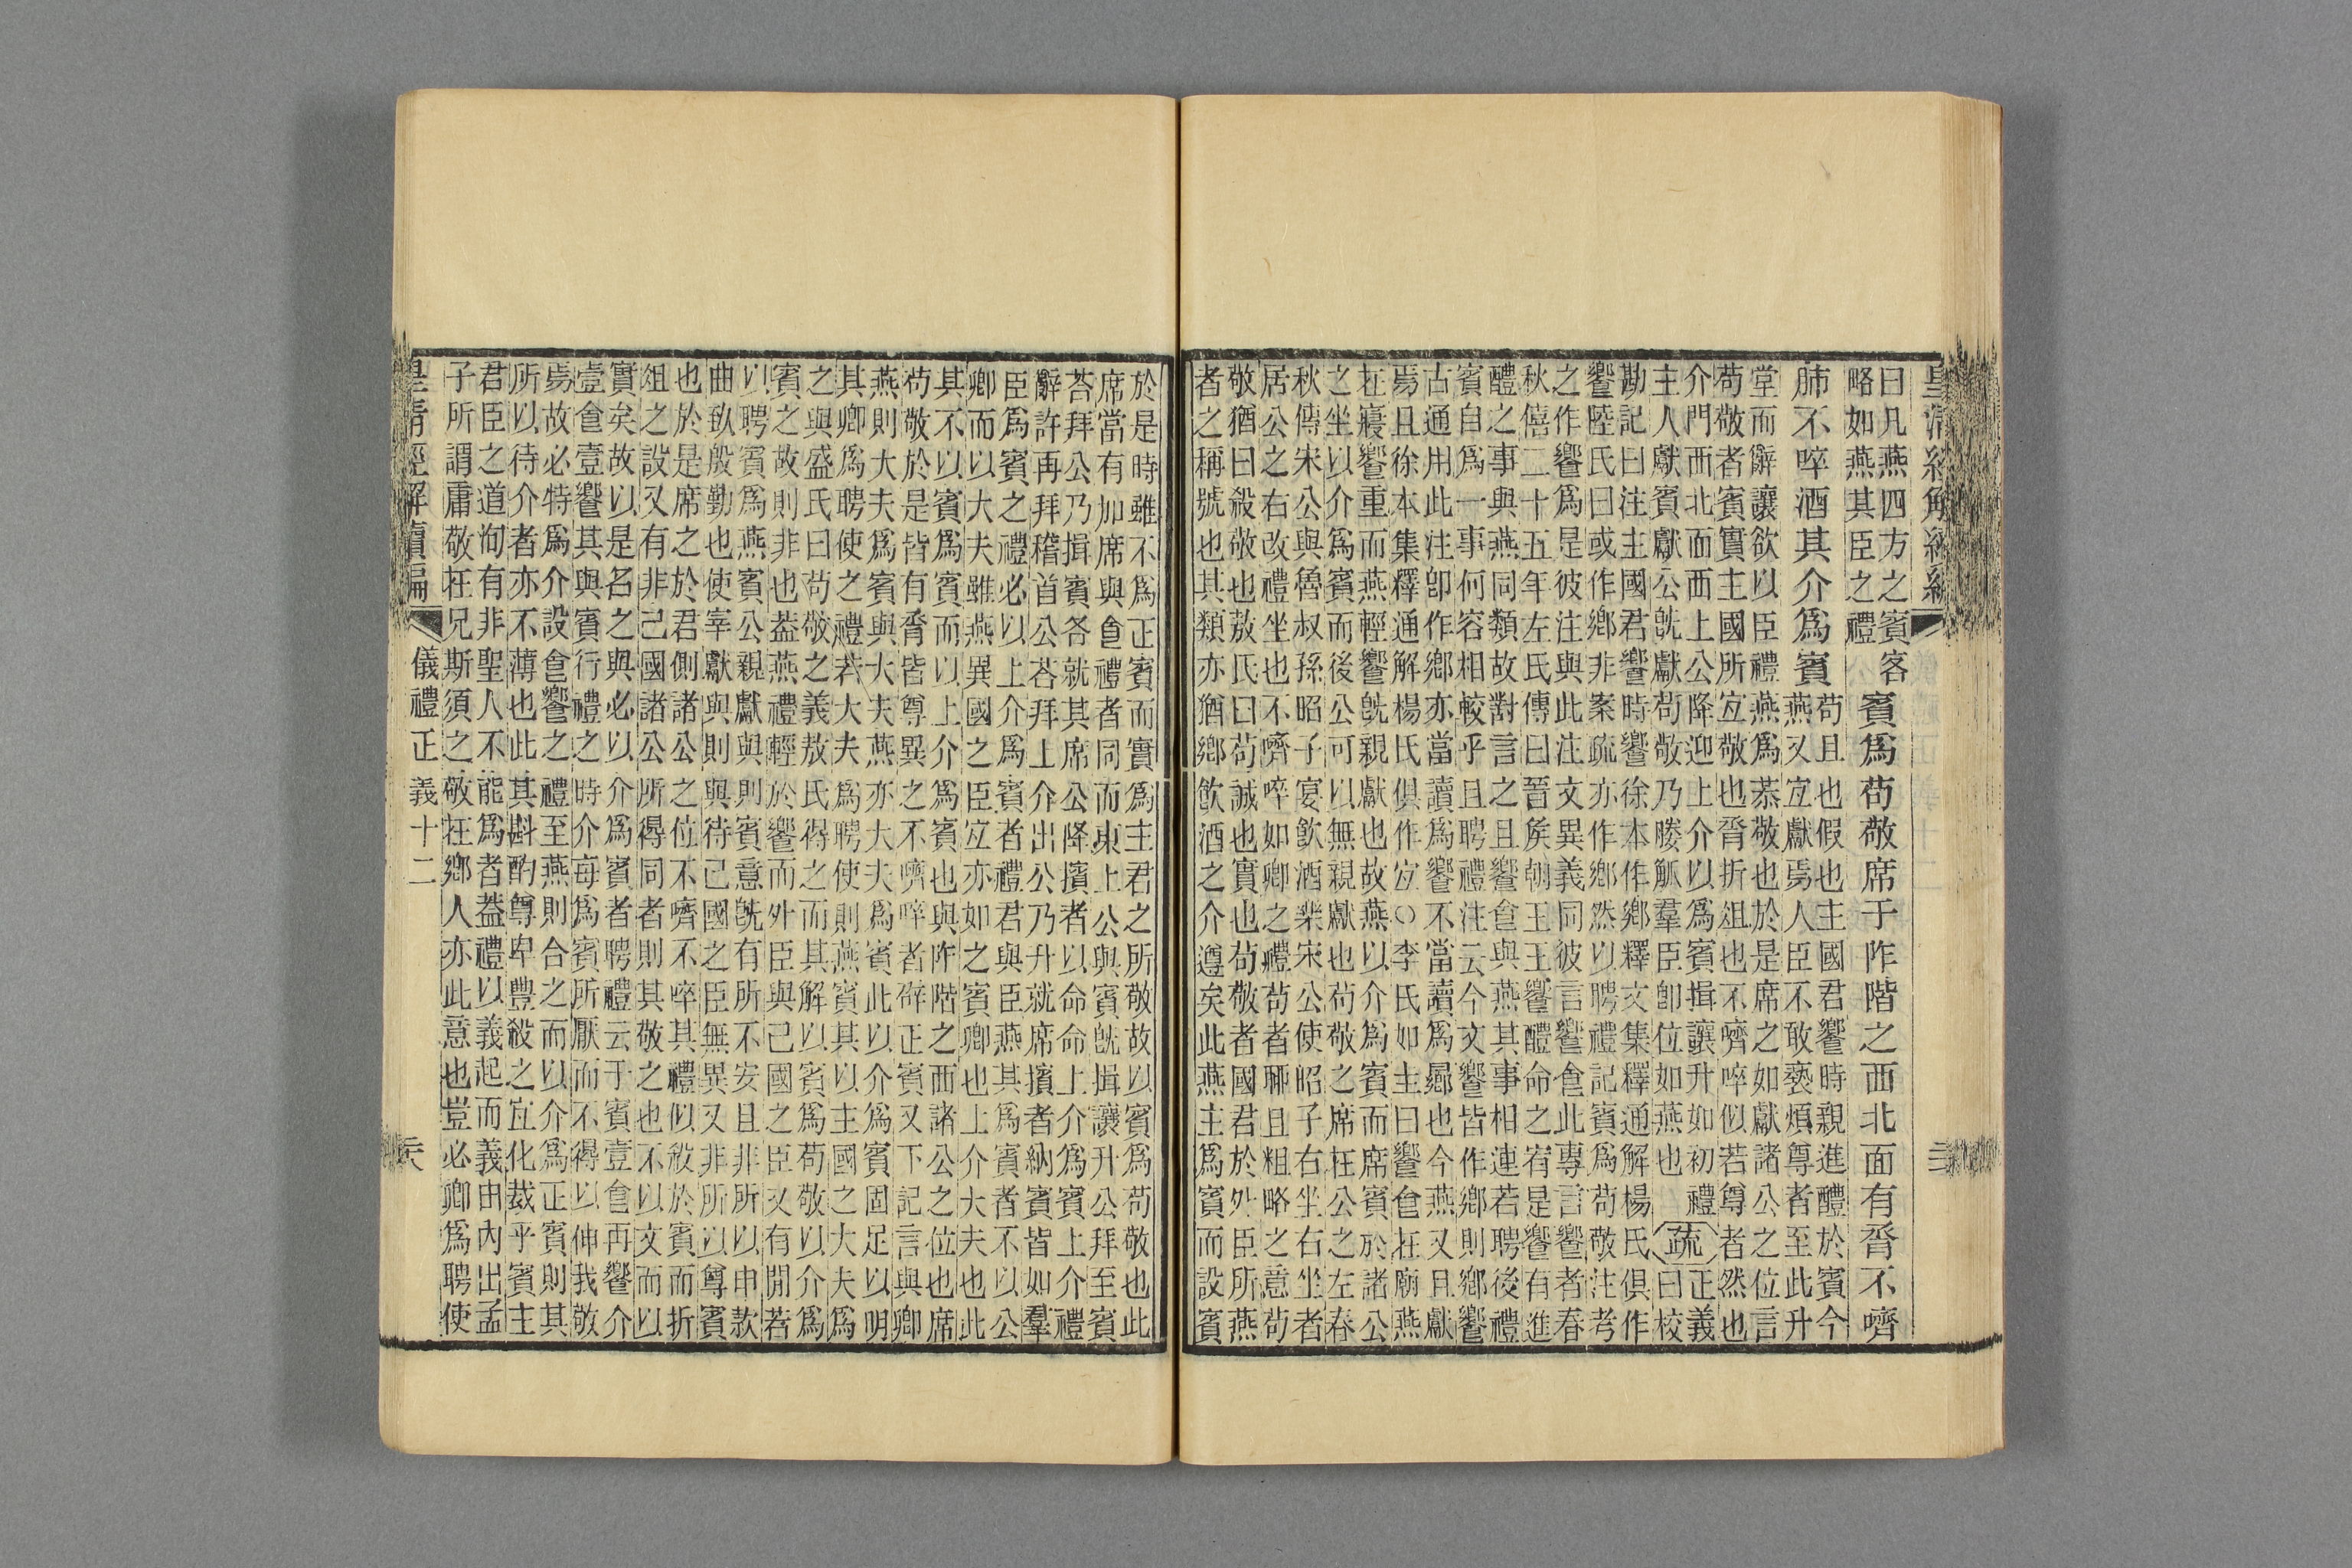 皇清經解續編
曰凡燕四方之賓客
略如燕其臣之禮
賓爲苟敬席于阼階之西北面有脀不嚌
肺不啐酒其介爲賓
苟且也假也主國君饗時親進醴於賓今
燕又宜獻焉人臣不敢褻煩尊者至此升
堂而辭讓欲以臣禮燕爲恭敬也於是席之如獻諸公之位言
苟敬者賓實主國所宜敬也脀折俎也不嚌啐似若尊者然也
介門西北面西上公降迎上介以爲賓揖讓升如初禮 正義
主人獻賓獻公旣獻苟敬乃媵觚羣臣卽位如燕也 疏 曰校
勘記曰注主國君饗時饗徐本作鄉釋文集釋通解楊氏俱作
饗陸氏曰或作鄉非案疏亦作鄉然以聘禮記賓爲苟敬注考
之作饗爲是彼注與此注文異義同彼言饗食此專言饗者春
秋僖二十五年左氏傳曰晉矦朝王王饗醴命之宥是饗有進
醴之事與燕同類故對言之且饗食與燕其事相連若聘後禮
賓自爲一事何容相較乎且聘禮注云今文饗皆作鄉則鄉饗
古通用此注卽作鄉亦當讀爲饗不當讀爲曏也今燕又且獻
焉且徐本集釋通解楊氏俱作宜○李氏如主曰饗食在廟燕
在寢饗重而燕輕饗旣親獻也故燕以介爲賓而席賓於諸公
之坐以介爲賓而後公可以無親獻也苟敬之席在公之左春
秋傳宋公與魯叔孫昭子宴飲酒樂宋公使昭子右坐右坐者
居公之右改禮坐也不嚌啐如卿之禮苟者聊且粗略之意苟
敬猶曰殺敬也敖氏曰苟誠也實也苟敬者國君於外臣所燕
者之稱號也其類亦猶鄉飲酒之介遵矣此燕主爲賓而設賓
於是時雖不爲正賓而實爲主君之所敬故以賓爲苟敬也此
席當有加席與食禮者同而東上公與賓旣揖讓升公拜至賓
荅拜公乃揖賓各就其席公降擯者以命命上介爲賓上介禮
辭許再拜稽首公荅拜上介出公乃升就席擯者納賓皆如羣
臣爲賓之禮必以上介爲賓者禮君與臣燕其爲賓者不以公
卿而以大夫雖燕異國之臣宜亦如之賓卿也上介大夫也此
其不以賓爲賓而以上介爲賓也與阼階之西諸公之位也席
苟敬於是皆有脀皆尊異之不嚌啐者辟正賓又下記言與卿
燕則大夫爲賓與大夫燕亦大夫爲賓此以介爲賓固足以明
其卿爲聘使之禮若大夫爲聘使則燕賓其以主國之大夫爲
之與盛氏曰苟敬之義敖氏得之而其解以賓爲苟敬以介爲
賓之故則非也葢燕禮輕於饗而外臣與己國之臣又有閒若
以聘賓爲燕賓公親獻與則賓意旣有所不安且非所以申款
曲致殷勤也使宰獻與則與待己國之臣無異又非所以尊賓
也於是席之於君側諸公之位不嚌不啐其禮似殺於賓而折
俎之設又有非己國諸公所得同者則其敬之也不以文而以
實矣故以是名之與必以介爲賓者聘禮云于賓壹食再饗介
壹食壹饗其與賓行禮之時介每爲賓所厭而不得以伸我敬
焉故必特爲介設食饗之禮至燕則合之而以介爲正賓則其
所以待介者亦不薄也此其斟酌尊卑豐殺之宜化裁乎賓主
君臣之道洵有非聖人不能爲者葢禮以義起而義由內出孟
子所謂庸敬在兄斯須之敬在鄉人亦此意也豈必卿爲聘使
皇清經解續編 儀禮正義十二